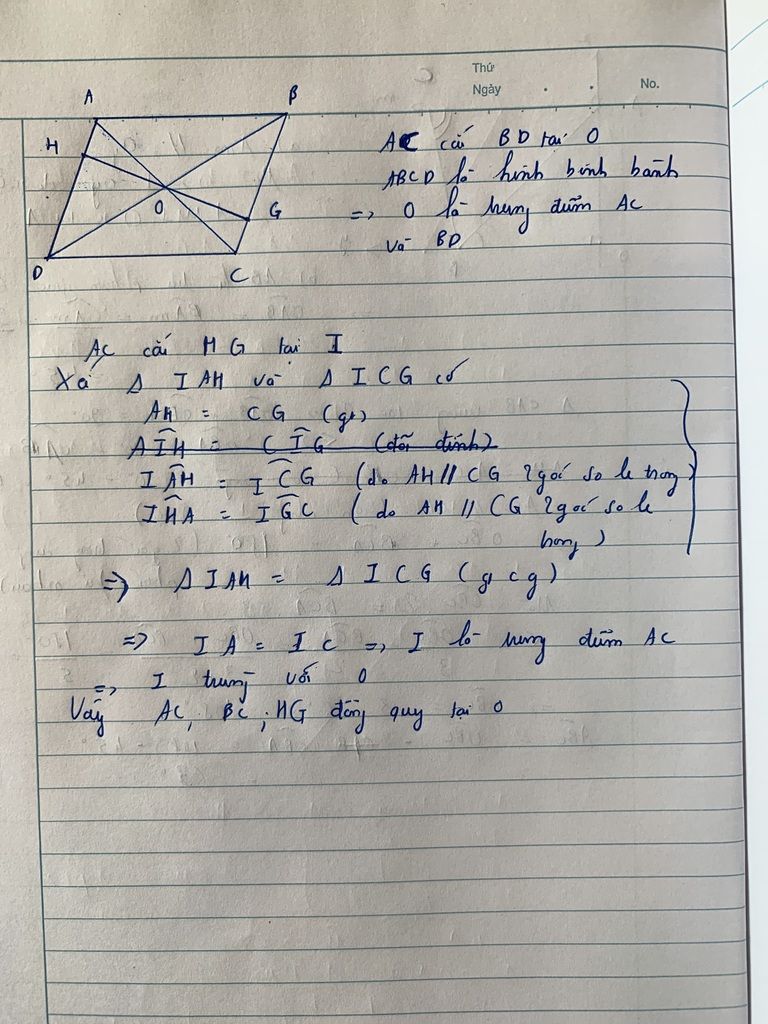 Thứ
Ngày . . No.
A B
H
O G
D C
AC cắt BD tại O
ABCD là hình bình hành
=> O là trung điểm AC
và BD
AC cắt HG tại I
Xét Δ IAH và Δ ICG có
AH = CG (gt)
AIH = CIG (đối đỉnh)
IAH = ICG (do AH // CG 2 góc so le trong)
IHA = IGC (do AH // CG 2 góc so le
trong)
=> Δ IAH = Δ ICG (g c g)
=> IA = IC => I là trung điểm AC
=> I trùng với O
Vậy AC, BC, HG đồng quy tại O